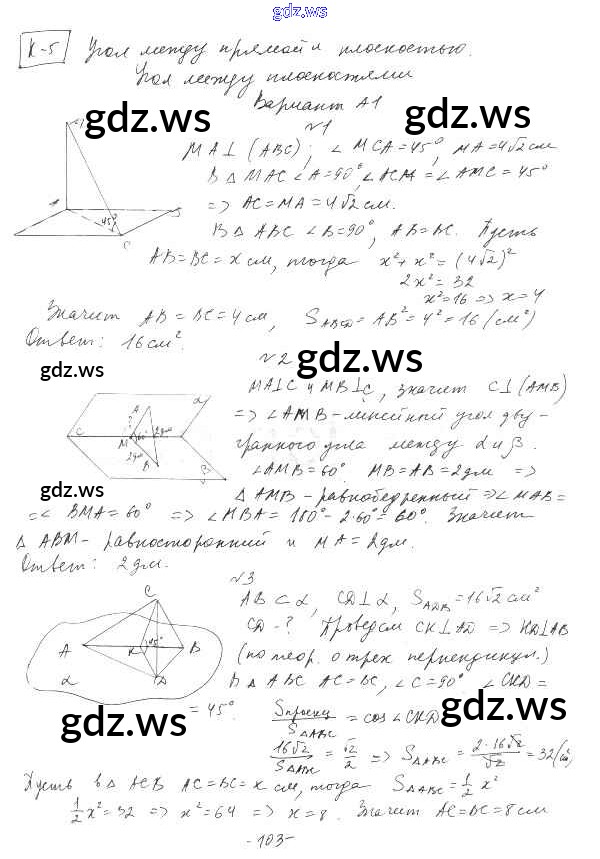 gdz.ws
К-5 Угол между прямой и плоскостью.
Угол между плоскостями
Вариант А1
gdz.ws
gdz.ws
№1
MA⊥(ABC); ∠MCA=45°, MA=4√2 см
В Δ MAC ∠A=90°, ∠ACM=∠AMC=45°
=> AC=MA=4√2 см.
В Δ ABC ∠B=90°, AB=BC. Пусть
AB=BC=x см, тогда x²+x²=(4√2)²
2x²=32
x²=16 => x=4
45°
C
Значит AB=BC=4 см, S_ABCD=AB²=4²=16 (см²)
Ответ: 16 см².
gdz.ws
gdz.ws
№2
MA⊥C и MB⊥C, значит C⊥(AMB)
=> ∠AMB-линейный угол дву-
гранного угла между α и β.
∠AMB=60° MB=AB=2дм =>
Δ AMB-равнобедренный => ∠MAB=
=∠ BMA=60° => ∠MBA=180°-2·60°=60°. Значит
Δ ABM-равносторонний и MA=2дм.
Ответ: 2дм.
α
A
?
2дм
C
M
60°
2дм
B
β
gdz.ws
gdz.ws
№3
AB⊂α, CD⊥α, S_ADB=16√2 см²
CD-? Проведем CK⊥AD => KD⊥AB
(по теор. о трех перпендикул.)
В Δ ABC AC=BC, ∠C=90° ∠CKD=
=45°.
S_проекц/S_ΔABC=cos∠CKD
16√2/S_ΔABC=√2/2 => S_ΔABC=2·16√2/√2=32(см²)
C
A
K
45°
B
α
D
gdz.ws
gdz.ws
Пусть в Δ ACB AC=BC=x см, тогда S_ΔABC=½x²
½x²=32 => x²=64 => x=8. Значит AC=BC=8см
-103-